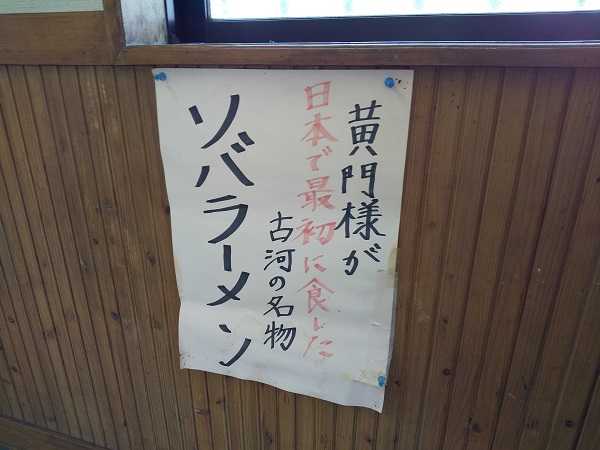 黄門様が
日本で最初に食した
古河の名物
ソバラーメン